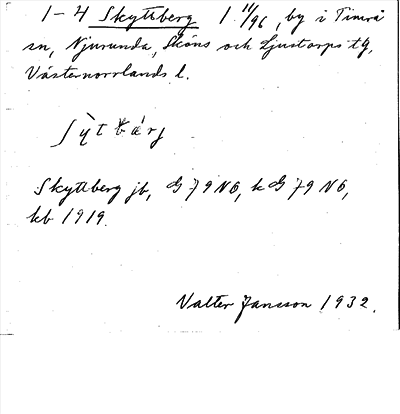 1-4 Skyttberg 1 11/96, by i Timrå
sn, Njurunda, Sköns och Ljustorps tg,
Västernorrlands l.
Skyttberg jb, G J 9 N6, k G J 9 N6,
kb 1919.
Valter Jansson 1932.